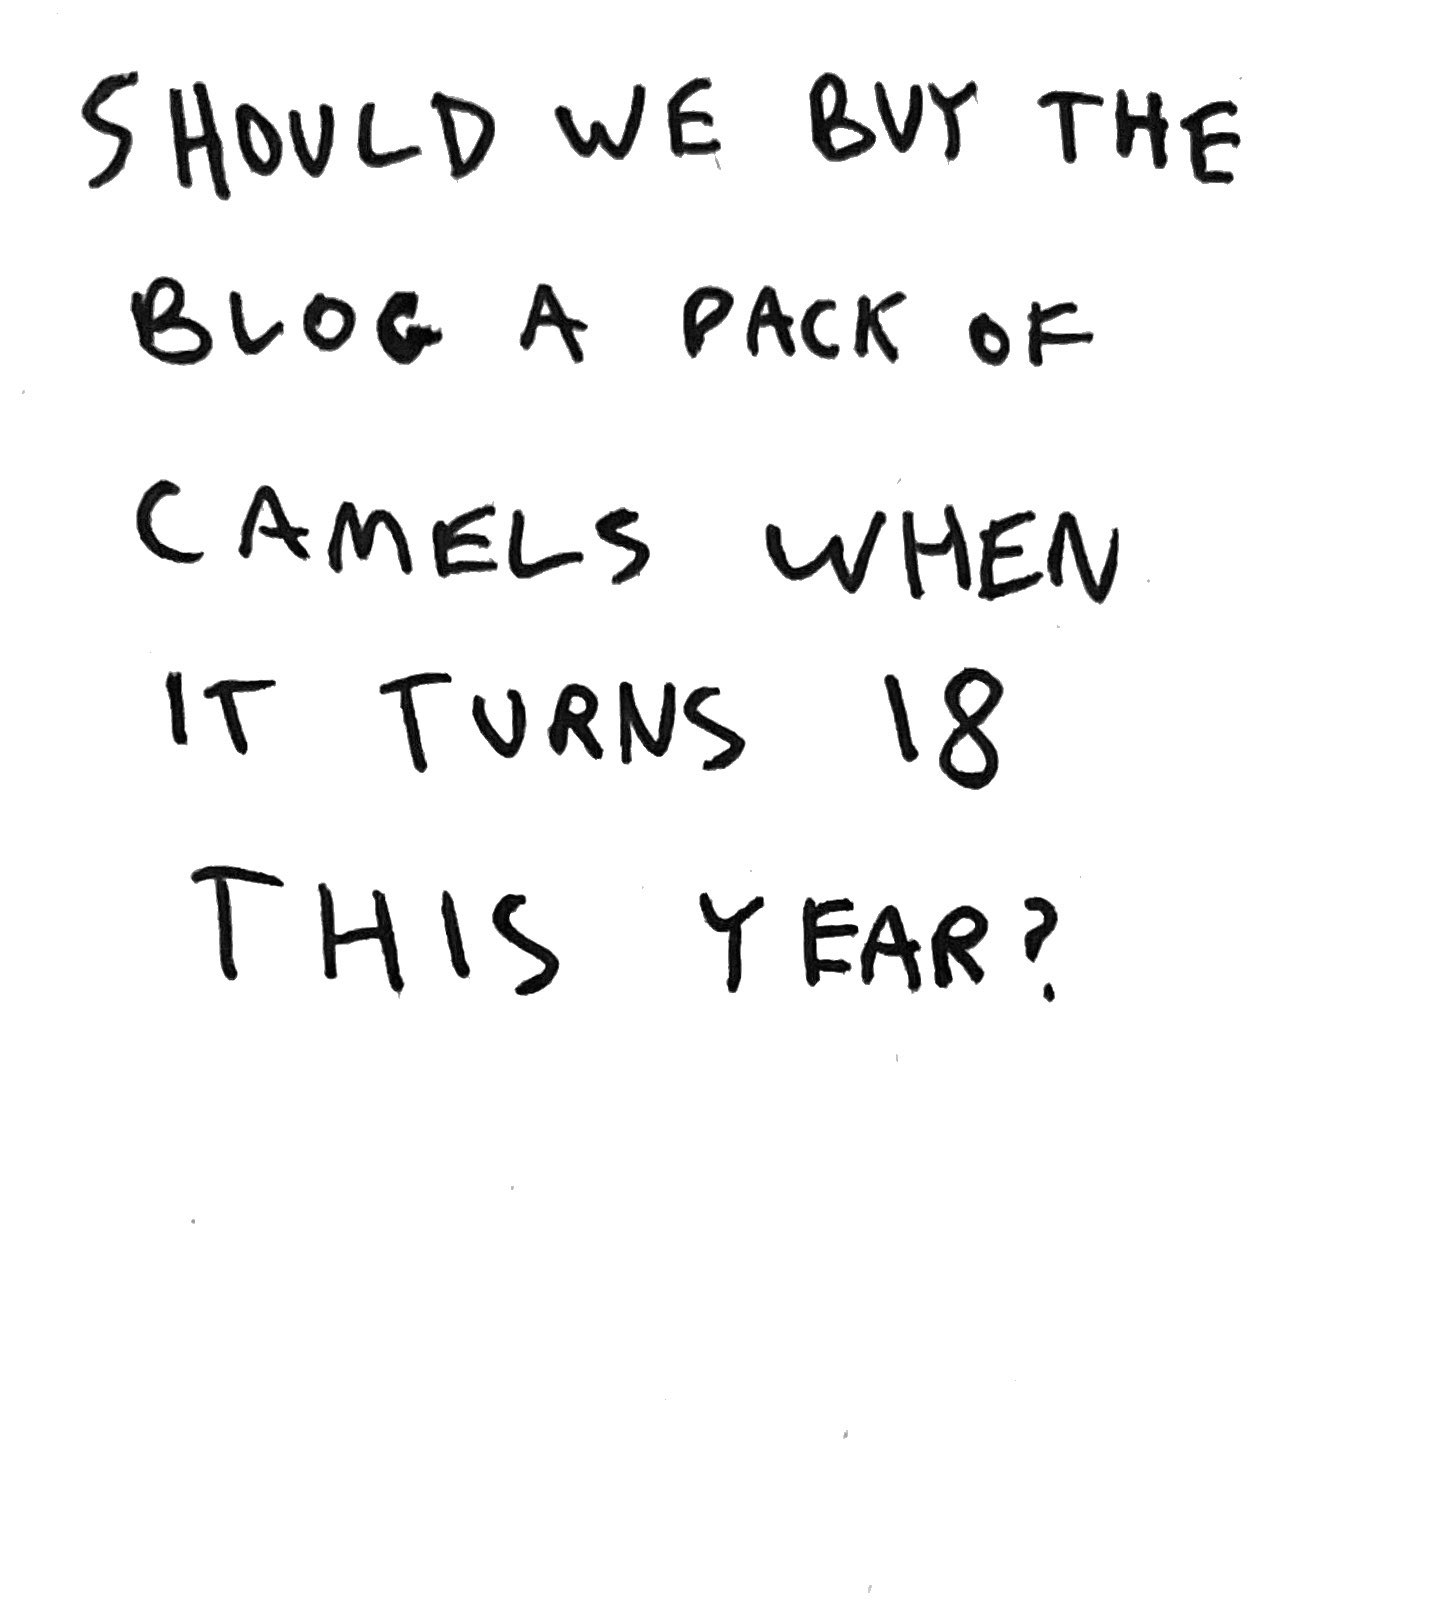 SHOULD WE BUY THE
BLOG A PACK OF
CAMELS WHEN
IT TURNS 18
THIS YEAR?